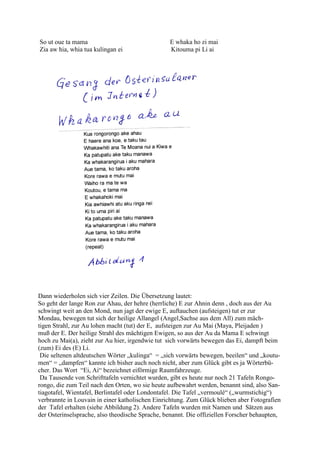 So ut oue ta mama E whaka ho zi mai
Zia aw hia, whia tua kulingan ei Kitouma pi Li ai
Gesang der Osterinsulaner
(im Internet)
Whakarongo ake au
Kua rongorongo ake ahau
E haere ana koe, e taku tau
Whakawhiti ana Te Moana nui a Kiwa e
Ka patupatu ake taku manawa
Ka whakarangirua i aku mahara
Aue tama, ko taku aroha
Kore rawa e mutu mai
Waiho ra ma te wa
Koutou, e tama ma
E whakahoki mai
Kia awhiawhi atu aku ringa nei
Ki to uma piri ai
Ka patupatu ake taku manawa
Ka whakarangirua i aku mahara
Aue tama, ko taku aroha
Kore rawa e mutu mai
(repeat)
Abbildung 1
Dann wiederholen sich vier Zeilen. Die Übersetzung lautet:
So geht der lange Ron zur Ahau, der hehre (herrliche) E zur Ahnin denn , doch aus der Au
schwingt weit an den Mond, nun jagt der ewige E, auftauchen (aufsteigen) tut er zur
Mondau, bewegen tut sich der heilige Allangel (Angel,Sachse aus dem All) zum mäch-
tigen Strahl, zur Au lohen macht (tut) der E, aufsteigen zur Au Mai (Maya, Plejaden )
muß der E. Der heilige Strahl des mächtigen Ewigen, so aus der Au da Mama E schwingt
hoch zu Mai(a), zieht zur Au hier, irgendwie tut sich vorwärts bewegen das Ei, dampft beim
(zum) Ei des (E) Li.
Die seltenen altdeutschen Wörter „kulinga“ = „sich vorwärts bewegen, beeilen“ und „koutu-
men“ = „dampfen“ kannte ich bisher auch noch nicht, aber zum Glück gibt es ja Wörterbü-
cher. Das Wort “Ei, Ai“ bezeichnet eiförmige Raumfahrzeuge.
Da Tausende von Schrifttafeln vernichtet wurden, gibt es heute nur noch 21 Tafeln Rongo-
rongo, die zum Teil nach den Orten, wo sie heute aufbewahrt werden, benannt sind, also San-
tiagotafel, Wientafel, Berlintafel oder Londontafel. Die Tafel „vermoulé“ („wurmstichig“)
verbrannte in Louvain in einer katholischen Einrichtung. Zum Glück blieben aber Fotografien
der Tafel erhalten (siehe Abbildung 2). Andere Tafeln wurden mit Namen und Sätzen aus
der Osterinselsprache, also theodische Sprache, benannt. Die offiziellen Forscher behaupten,